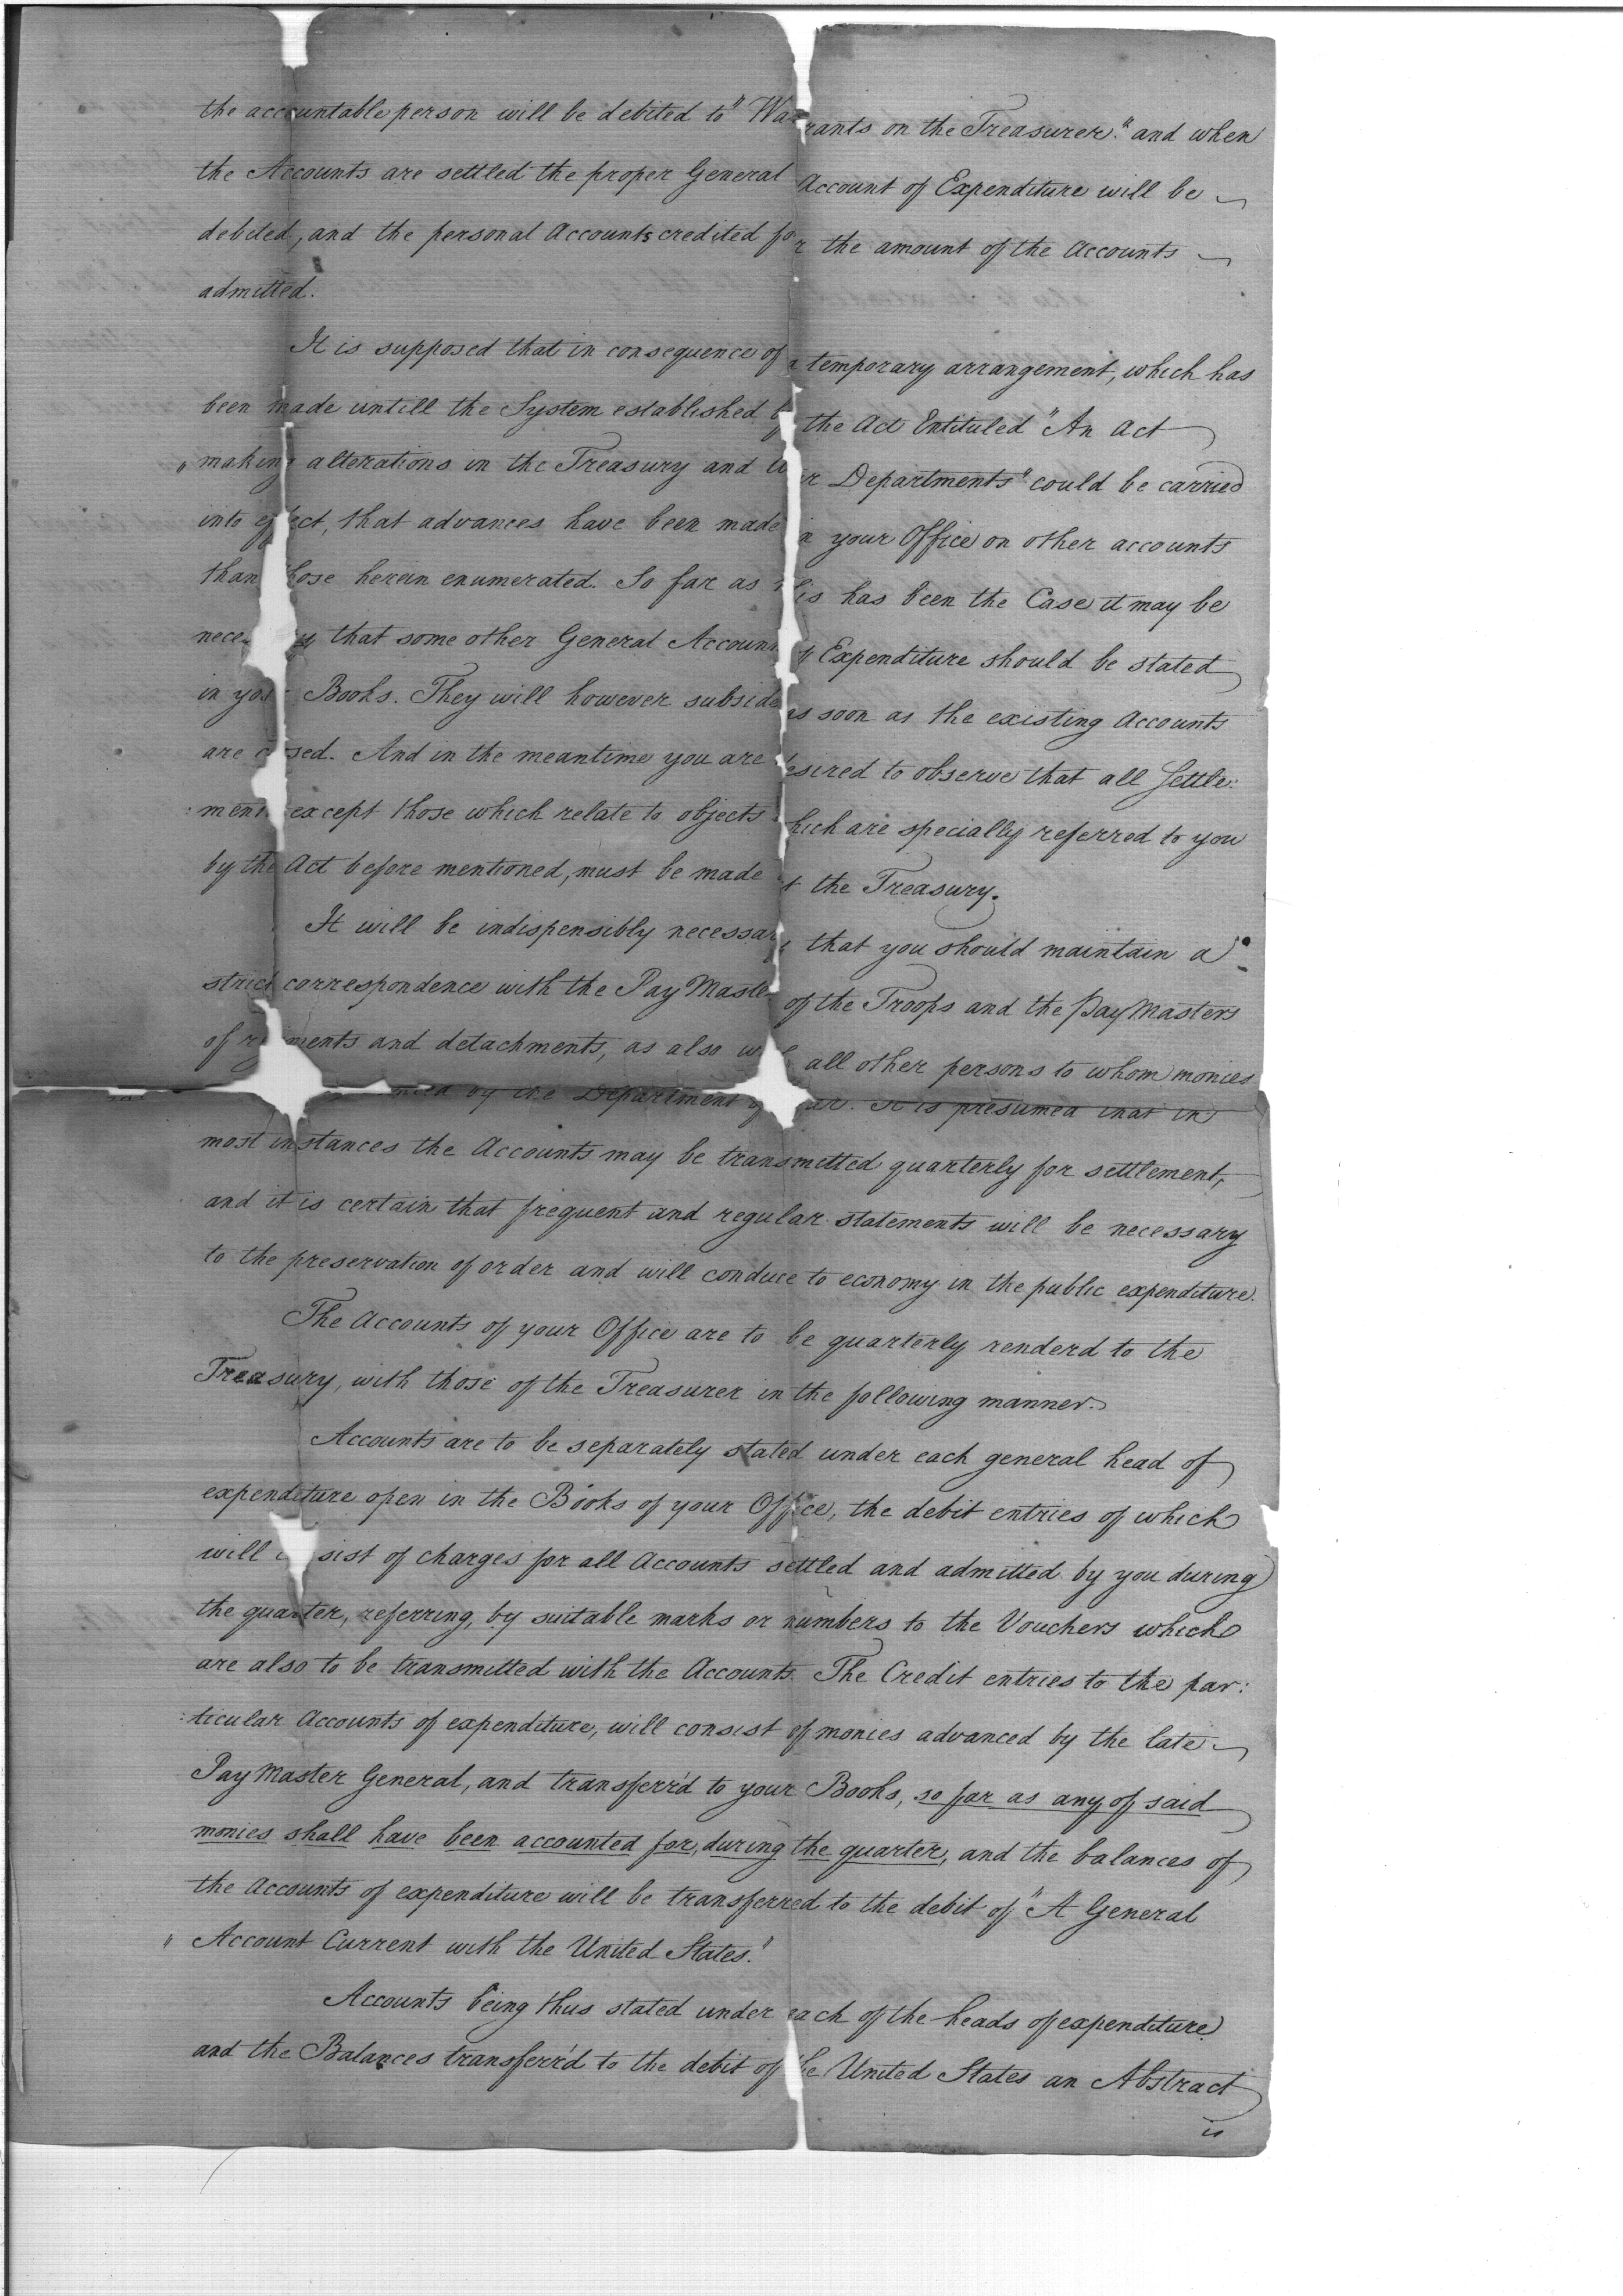 the accountable person will be debited to "Warrants on the Treasurer." and when
the Accounts are settled the proper General Account of Expenditure will be
debited, and the personal Accounts credited for the amount of the Accounts
admitted.
It is supposed that in consequence of a temporary arrangement, which has
been made untill the System established by the Act Entituled "An Act
" making alterations in the Treasury and War Departments" could be carried
into effect, that advances have been made in your Office on other accounts
than those herein enumerated. So far as this has been the Case it may be
necessary that some other General Account of Expenditure should be stated
in your Books. They will however subside as soon as the existing Accounts
are closed. And in the meantime you are desired to observe that all Settle:
:ments except those which relate to objects which are specially referred to you
by the Act before mentioned, must be made at the Treasury.
It will be indispensibly necessary that you should maintain a
strict correspondence with the Pay Master of the Troops and the Pay Masters
of regiments and detachments, as also with all other persons to whom monies
by the Department of War. It is presumed that in
most instances the Accounts may be transmitted quarterly for settlement,
and it is certain that frequent and regular statements will be necessary
to the preservation of order and will conduce to economy in the public expenditure.
The Accounts of your Office are to be quarterly renderd to the
Treasury, with those of the Treasurer in the following manner.
Accounts are to be separately stated under each general head of
expenditure open in the Books of your Office, the debit entries of which
will consist of charges for all Accounts settled and admitted by you during
the quarter, referring, by suitable marks or numbers to the Vouchers which
are also to be transmitted with the Accounts. The Credit entries to the par:
:ticular Accounts of expenditure, will consist of monies advanced by the late
Pay Master General, and transferr'd to your Books, so far as any of said
monies shall have been accounted for, during the quarter, and the balances of
the Accounts of expenditure will be transferred to the debit of "A General
" Account Current with the United States."
Accounts being thus stated under each of the heads of expenditure
and the Balances transferr'd to the debit of the United States an Abstract
is